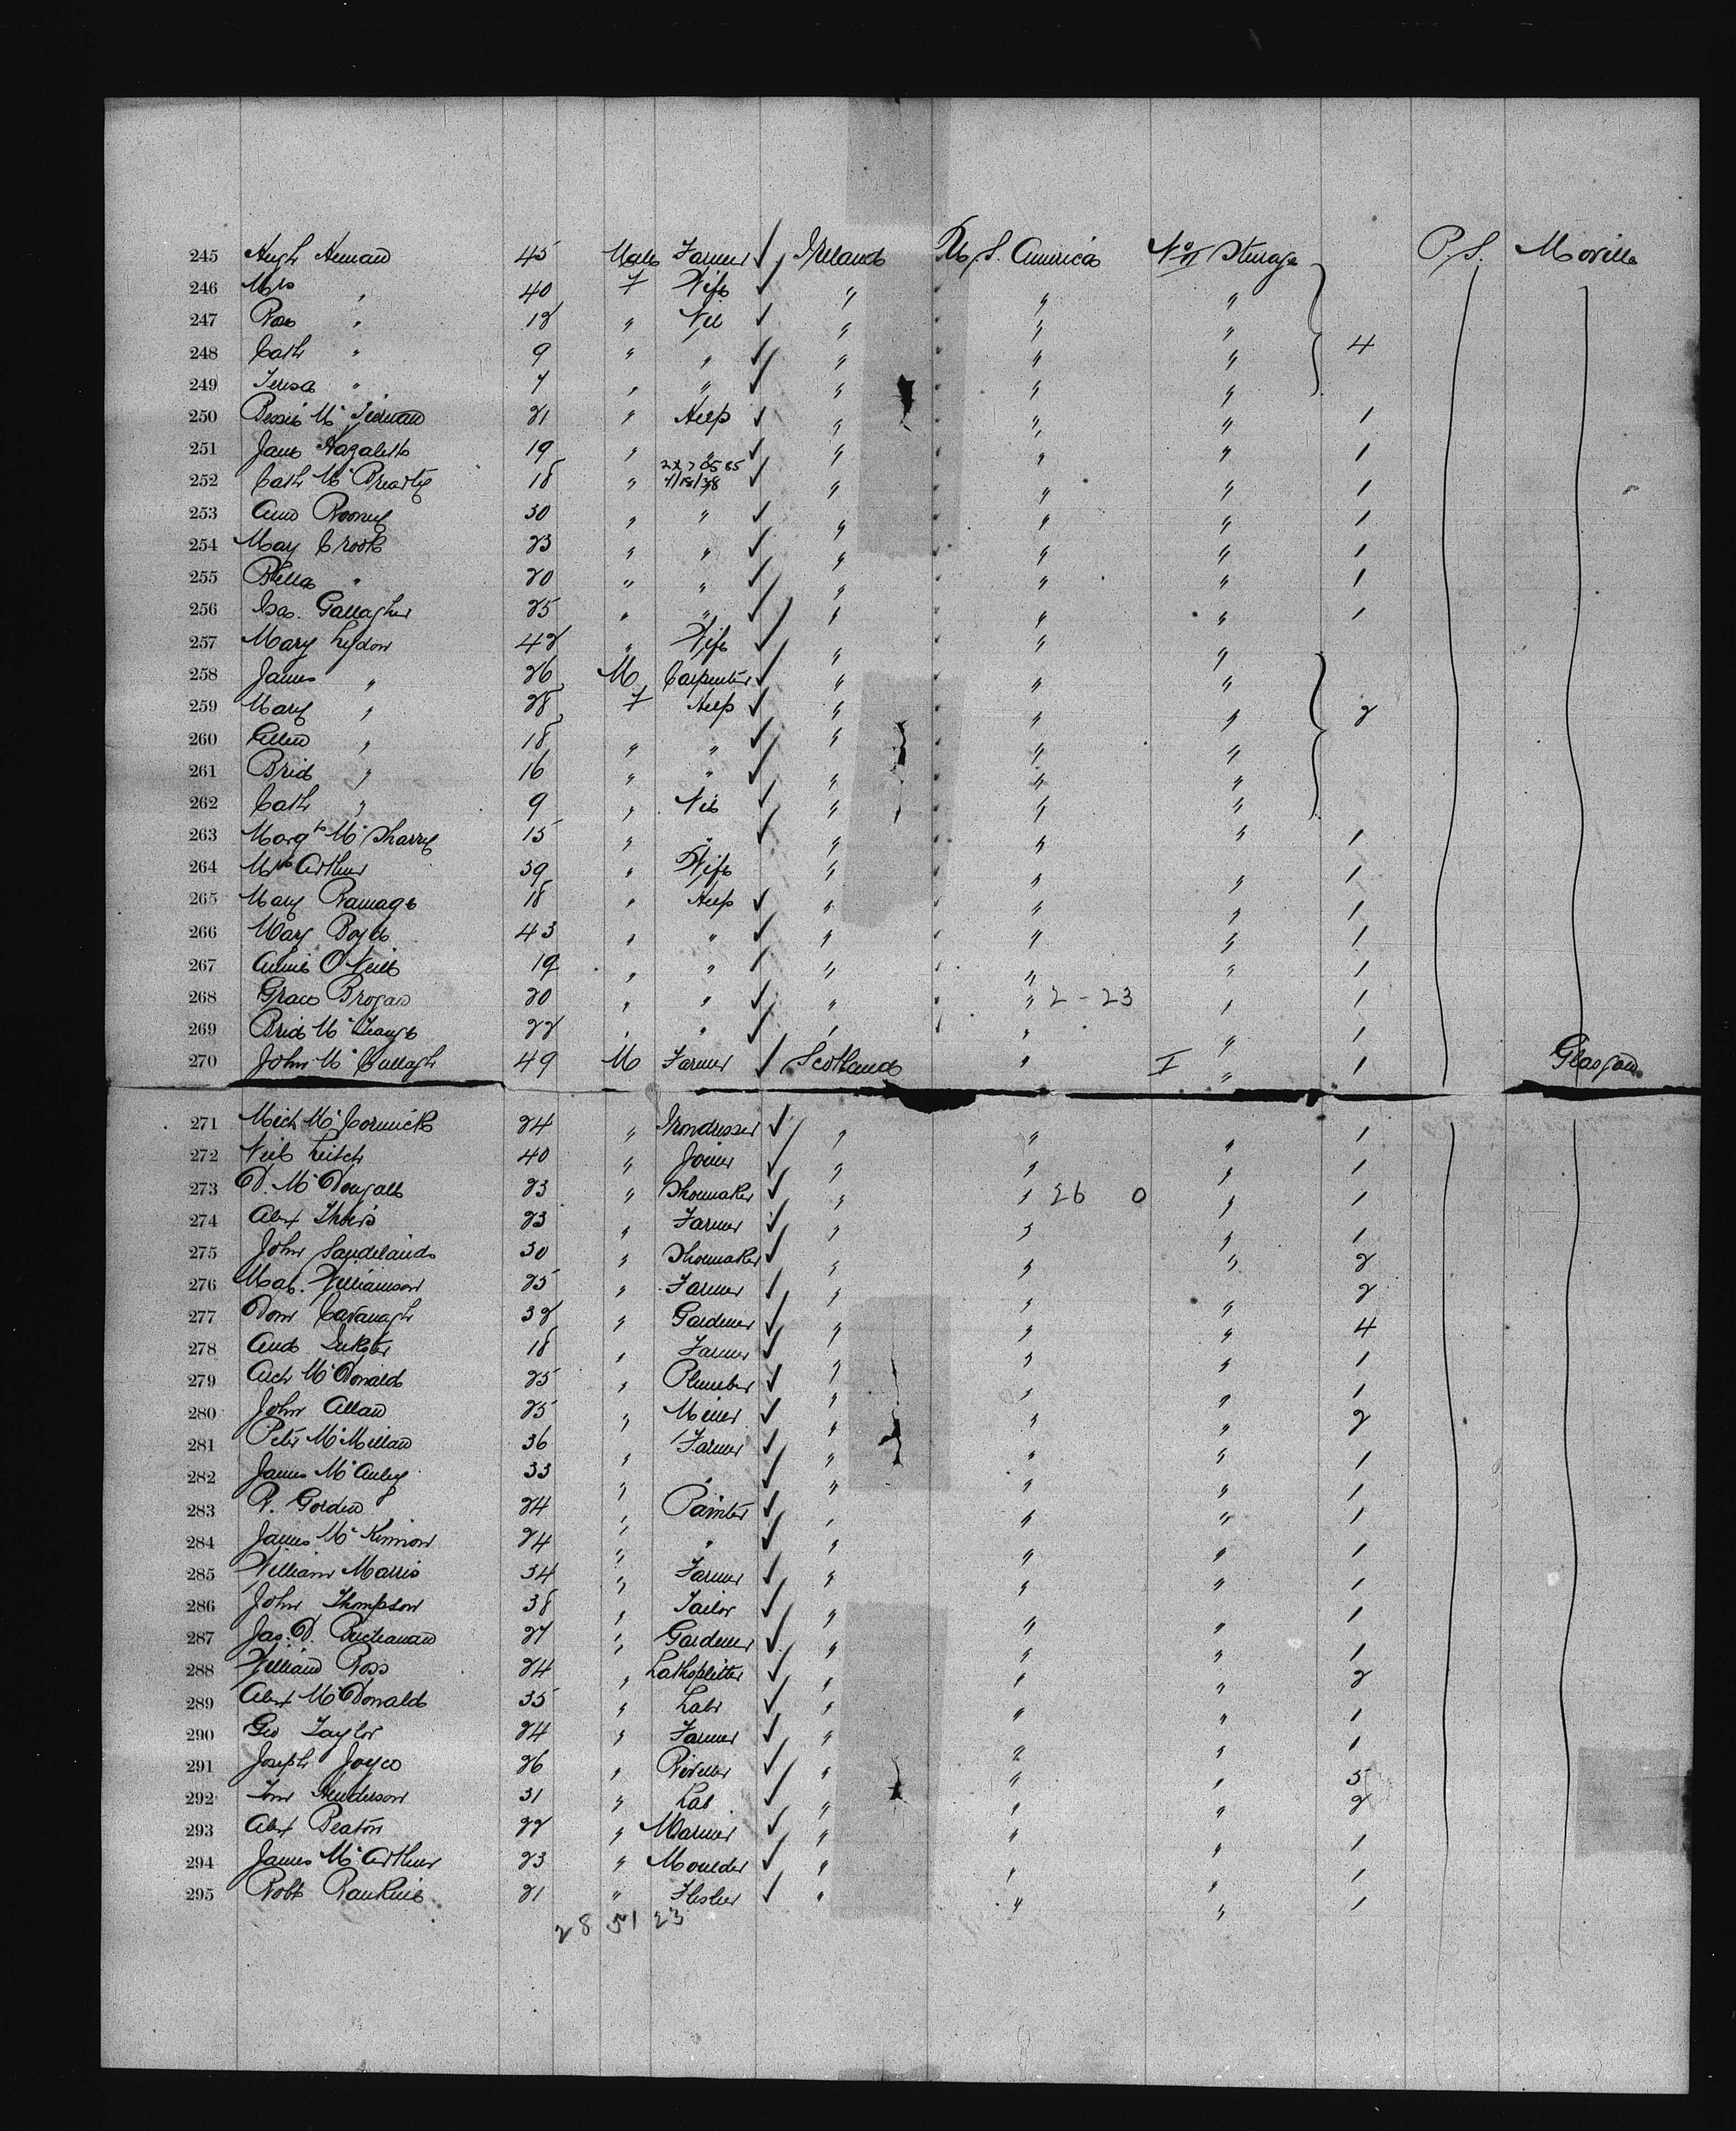 245 Hugh Heenan 45 Male Farmer ✓ Ireland U. S. America No II Steerage P. S. Moville
246 Mrs " 40 F Wife ✓ " " "
247 Rose " 12 " Nil ✓ " " "
248 Cath " 9 " " ✓ " " " 4
249 Teresa " 7 " " ✓ " " "
250 Bessie McTiernan 21 " Help ✓ " " " 1
251 Jane Hazalett 19 " " ✓ " " " 1
2X70585
252 Cath McBrearty 18 " 7/18/38 ✓ " " " 1
253 Ann Rooney 30 " " ✓ " " " 1
254 May Crook 23 " " ✓ " " " 1
255 Bella " 20 " " ✓ " " " 1
256 Isa. Gallagher 25 " " ✓ " " " 1
257 Mary Lydon 42 " Wife ✓ " " "
258 James " 26 M Carpenter ✓ " " "
259 Mary " 28 F Help ✓ " " " 2
260 Ellen " 18 " " ✓ " " "
261 Brid " 16 " " ✓ " " "
262 Cath " 9 " Nil ✓ " " "
263 Margt McSharry 15 " " ✓ " " " 1
264 Mrs Arthur 39 " Wife " " " 1
265 Mary Ramage 18 " Help ✓ " " " 1
266 Mary Boyle 43 " " ✓ " " " 1
267 Annie O'Neill 19 " " ✓ " " " 1
268 Grace Brogan 20 " " ✓ " " 2-23 " 1
269 Brid 22 " " ✓ " " " 1
270 John McCullagh 49 M Farmer ✓ Scotland " I " 1 Glasgow
271 Mich McCormick 24 " Irondresser ✓ " " " 1
272 Neil Leitch 40 " Joiner ✓ " " " 1
273 D. McDougall 23 " Shoemaker ✓ " " 26 0 " 1
274 Alex 23 " Farmer ✓ " " " 1
275 John Sandilands 30 " Shoemaker ✓ " " " 2
276 Mal. Williamson 25 " Farmer ✓ " " " 2
277 Dom Cavanagh 32 " Gardener ✓ " " " 4
278 And 18 " Farmer ✓ " " " 1
279 Arch McDonald 25 " Plumber ✓ " " " 1
280 John Allan 25 " Miner ✓ " " " 2
281 Peter McMillan 36 " Farmer ✓ " " " 1
282 James McAuley 33 " " ✓ " " " 1
283 R. Gordon 24 " Painter ✓ " " " 1
284 James McKinnon 24 " " ✓ " " " 1
285 William Morris 34 " Farmer ✓ " " " 1
286 John Thompson 38 " Tailor ✓ " " " 1
287 Jas. D. Buchanan 27 " Gardener ✓ " " " 1
288 William Ross 24 " Lathsplitter ✓ " " " 2
289 Alex McDonald 35 " Labr ✓ " " " 1
290 Geo Taylor 24 " Farmer ✓ " " " 1
291 Joseph Joyce 26 " Riveter ✓ " " " 5
292 Tom Henderson 31 " Lab ✓ " " " 2
293 Alex Beaton 22 " Mariner ✓ " " " 1
294 James McArthur 23 " Moulder ✓ " " " 1
295 Robt Rankine 21 " Flesher ✓ " " " 1
28 51 23